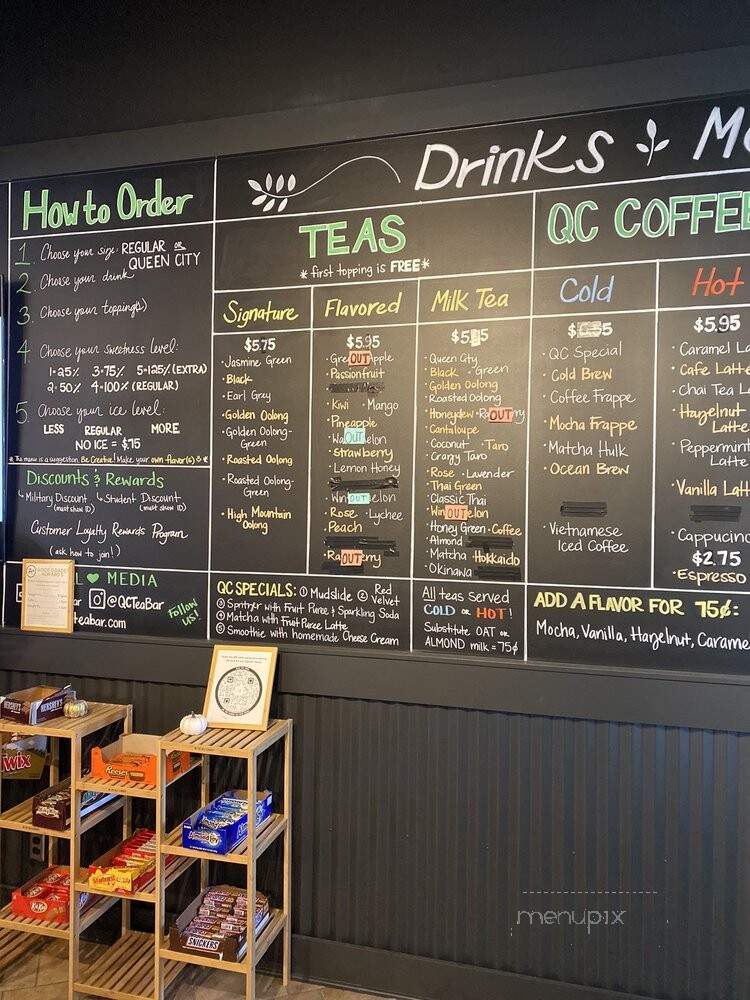 Drinks
How to Order
1. Choose your size: REGULAR or QUEEN CITY
2. Choose your drink
3. Choose your topping(s)
4. Choose your sweetness level:
1=25% 3=75% 5=125% (EXTRA)
2=50% 4=100% (REGULAR)
5. Choose your ice level:
LESS REGULAR MORE
NO ICE = $.75
*The menu is a suggestion. Be Creative! Make your own flavor(s)☺*
Discounts & Rewards
Military Discount (must show ID)
Student Discount (must show ID)
Customer Loyalty Rewards Program
(ask how to join!)
MEDIA
@QCTeaBar
teabar.com
Follow us!
TEAS
*first topping is FREE*
Signature
$5.75
· Jasmine Green
· Black
· Earl Grey
· Golden Oolong
· Golden Oolong-Green
· Roasted Oolong
· Roasted Oolong-Green
· High Mountain Oolong
Flavored
$5.95
OUT
· Passionfruit
· Kiwi · Mango
· Pineapple
OUT
· Strawberry
· Lemon Honey
OUT
· Rose · Lychee
· Peach
OUT
Milk Tea
· Queen City
· Black · Green
· Golden Oolong
· Roasted Oolong
· Honeydew OUT
· Cantaloupe
· Coconut · Taro
· Crazy Taro
· Rose · Lavender
· Thai Green
· Classic Thai
OUT
· Honey Green · Coffee
· Almond
· Matcha Hokkaido
· Okinawa
QC COFFEE
Cold
· QC Special
· Cold Brew
· Coffee Frappe
· Mocha Frappe
· Matcha Hulk
· Ocean Brew
· Vietnamese Iced Coffee
Hot
$5.95
· Cafe Latte
· Chai Tea
· Hazelnut Latte
· Peppermint Latte
· Vanilla
· Cappuccino
$2.75
· Espresso
QC SPECIALS: ① Mudslide ② Red Velvet
③ Spritzer with Fruit Puree & Sparkling Soda
④ Matcha with Fruit Puree Latte
⑤ Smoothie with homemade Cheese Cream
All teas served
COLD or HOT!
Substitute OAT or
ALMOND milk = 75¢
ADD A FLAVOR FOR 75¢:
Mocha, Vanilla, Hazelnut,
HERSHEY'S
HERSHEY'S
TWIX
Reese's
SNICKERS
menupix